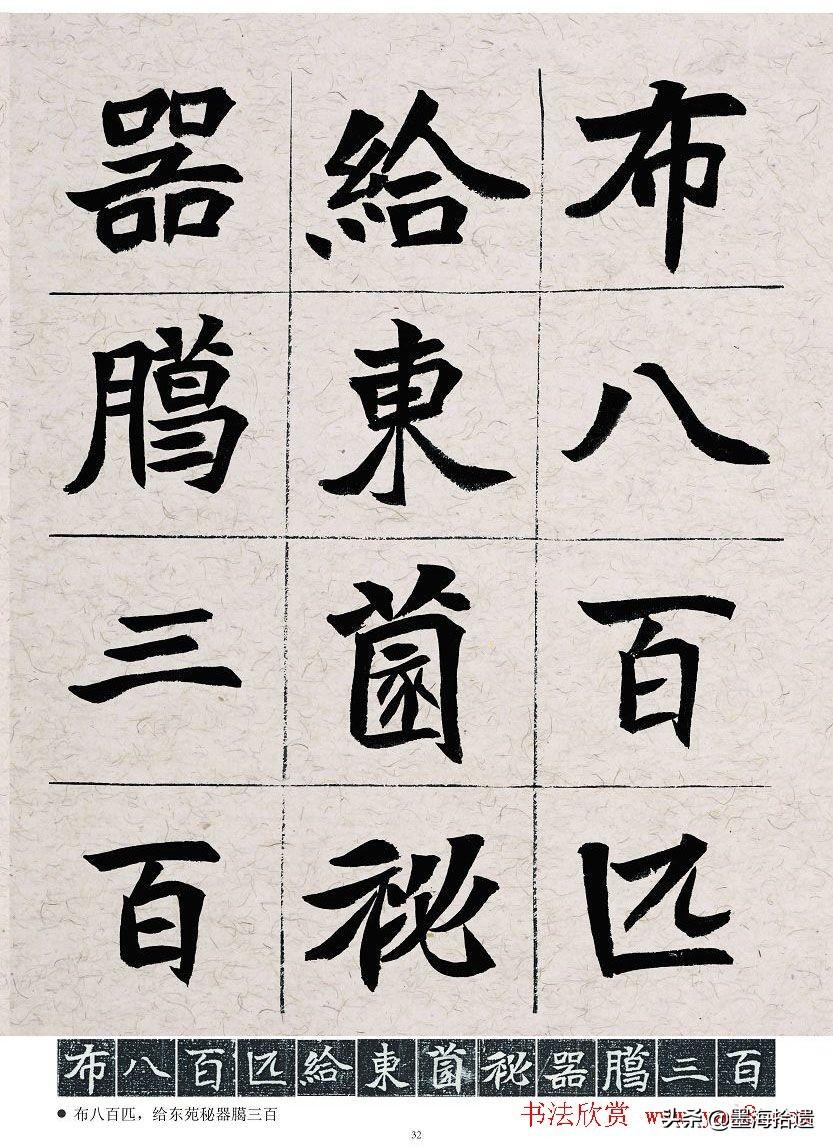 布八百匹
給東薗祕
器䐵三百
布八百匹給東薗祕器䐵三百
● 布八百匹，给东苑秘器䐵三百
书法欣赏 www.
头条@墨海拾遗
32